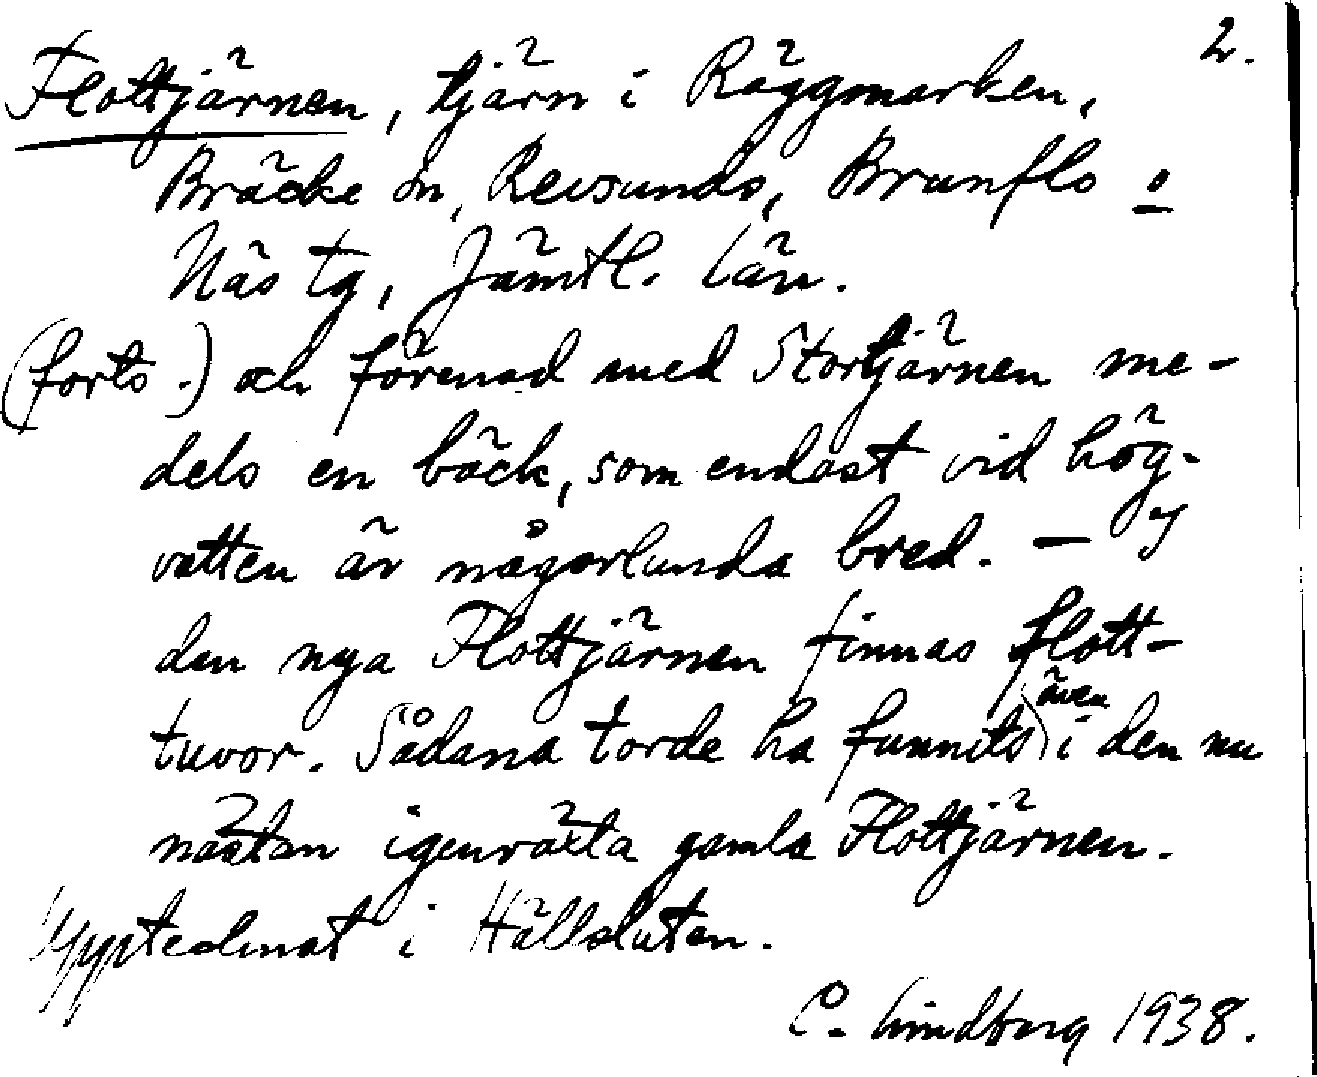 2.
Flottjärnen, tjärn i Räggmarken,
Bräcke sn, Revsunds, Brunflo o
Näs tg, Jämtl. län.
(forts.) och förenad med Stortjärnen me-
dels en bäck, som endast vid hög-
vatten är någorlunda bred. — I
den nya Flottjärnen finnas flott-
tuvor. Sådana torde ha funnits även i den nu
nästan igenväxta gamla Flottjärnen.
Upptecknat i Hällsluten.
C. Lindberg 1938.